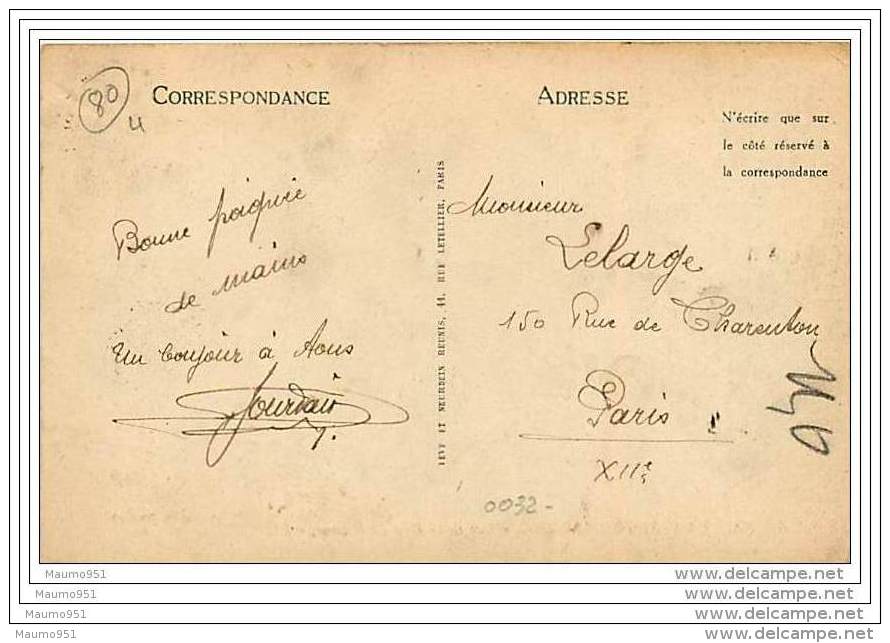 80
CORRESPONDANCE
ADRESSE
N'écrire que sur
le côté réservé à
la correspondance
Bonne poignée
de mains
Un bonjour à tous
Jourdain
LEVY ET NEURDEIN REUNIS, 44, RUE LETELLIER, PARIS
Monsieur
Lelarge
150 Rue de Charenton
Paris
XIIe
0032-
Maumo951
Maumo951
Maumo951
Maumo951
www.delcampe.net
www.delcampe.net
www.delcampe.net
www.delcampe.net